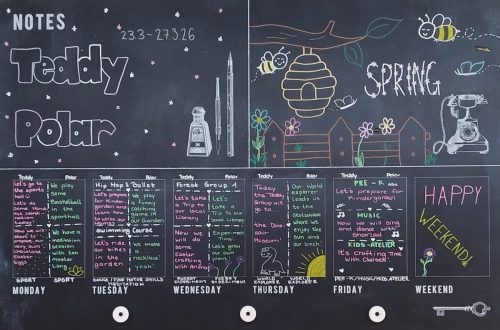 NOTES
23.3-27.3.26
Teddy
Polar
SPRING
Teddy Polar
Let's go to the sports hall.
We play some Basketball in the sportshall
We have a meditation session with
SPORT SPORT
MONDAY
Hip Hop & Ballet
Let's prepare for Kindergarden and learn how to write our
We have a funny catching game in our Garden
Swimming Course
Let's ride our bikes in the garden
We make a necklace
TUESDAY
Teddy Polar
Forest Group 1
Let's take a Trip to our local Library
Let's take a Trip to our local Library
Now we will do some Easter Crafting with
Experiment Time. Let's grow our own
WEDNESDAY
Teddy Polar
Today the Teddy Group will go to the Dinosaur Museum!
Our World explorer leads us to the
where we enjoy the sun and our lunch
WORLD EXPLORER
THURSDAY
Teddy Polar
PRE - K
Let's prepare for Kindergarden
MUSIC
Now we will sing and dance with
KIDS-ATELIER
It's Crafting Time with Chelsea!
PRE-K/MUSIC/KIDS-ATELIER
FRIDAY
HAPPY
WEEKEND!
WEEKEND